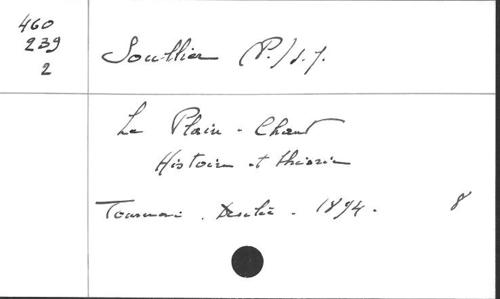 460
239
2
Soullier (P.) s. j.
Le Plain-Chant
Histoire et théorie
Tournai. Desclée. 1894. 8